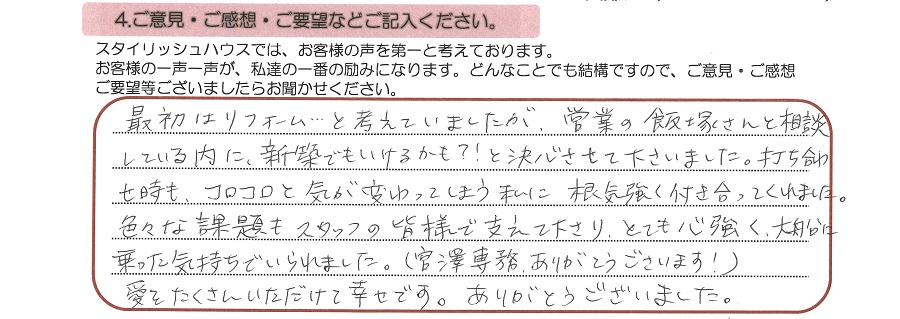 4.ご意見・ご感想・ご要望などご記入ください。
スタイリッシュハウスでは、お客様の声を第一と考えております。
お客様の一声一声が、私達の一番の励みになります。どんなことでも結構ですので、ご意見・ご感想
ご要望等ございましたらお聞かせください。
最初はリフォーム…と考えていましたが、営業の飯塚さんと相談
している内に、新築でもいけるかも?!と決心させて下さいました。打ち合わ
せ時も、コロコロと気が変わってしまう私に根気強く付き合ってくれました。
色々な課題もスタッフの皆様で支えて下さり、とても心強く、大船に
乗った気持ちでいられました。(宮澤専務、ありがとうございます!)
愛をたくさんいただけて幸せです。ありがとうございました。